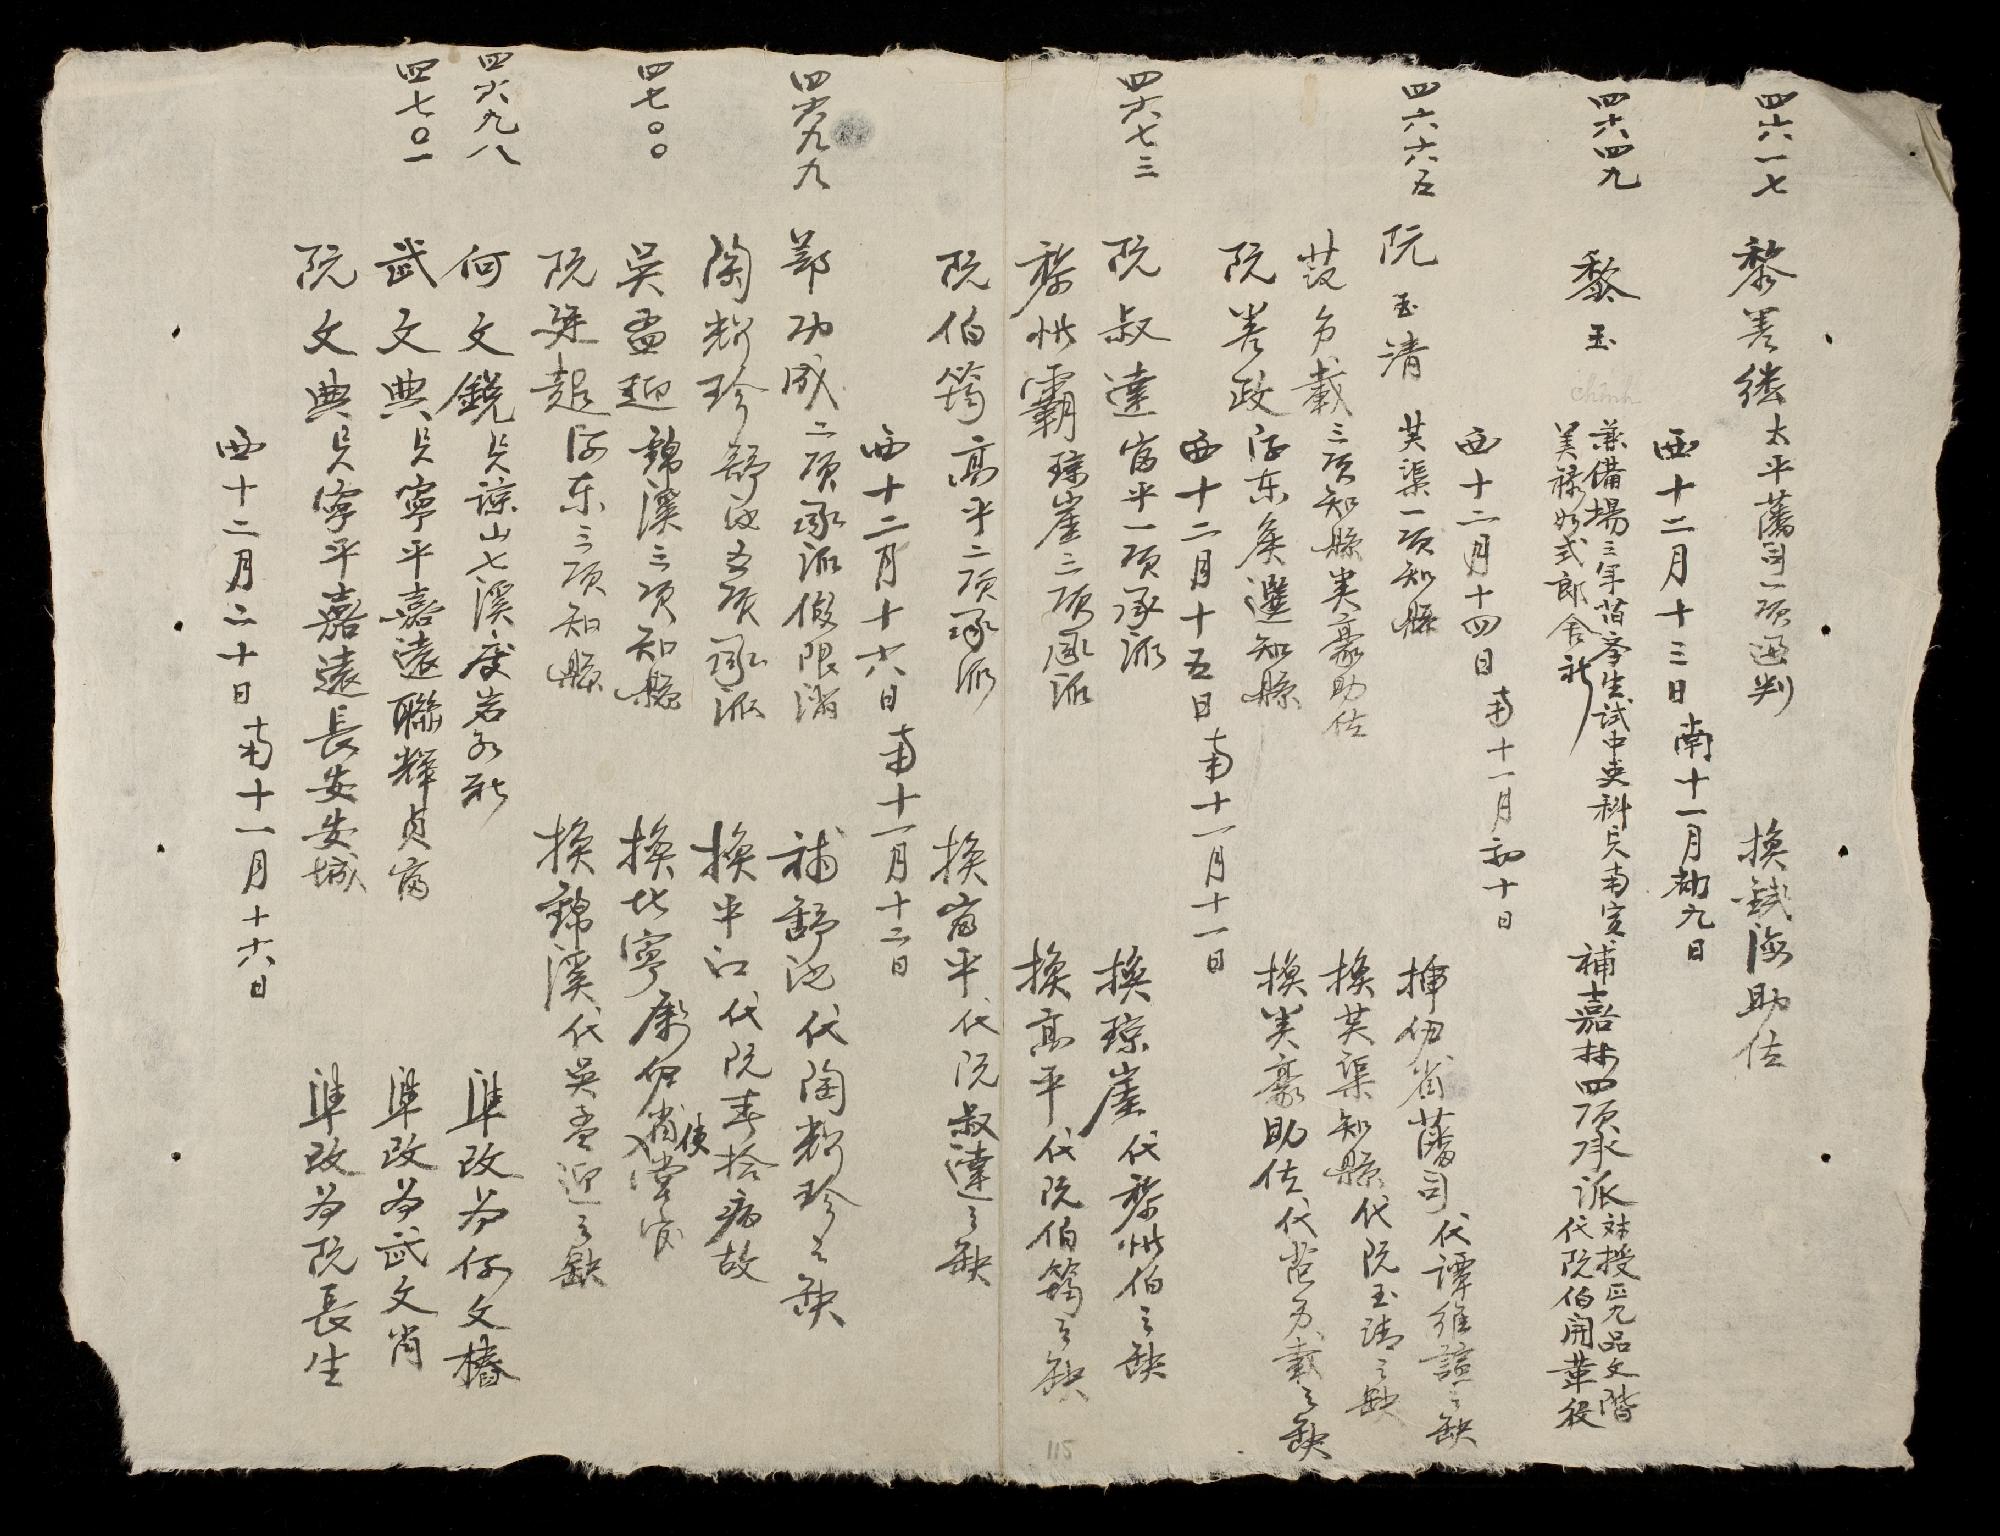 四六一七 黎善繼太平藩司一項通判 換鉞海助佐
西十二月十三日南十一月初九日
四六四九 黎玉
chính
兼備場三年 生試中吏科貫南定
美祿 式郎舍社
補嘉林四項承派
試授正九品文階
代阮伯開葦役
西十二月十四日南十一月初十日
四六六五 阮玉清 芙渠一項知縣 押 省藩司代譚維諠之缺
范有載三項知縣 豪助佐 換芙渠知縣代阮玉清之缺
阮善政河东矦選知縣 換 豪助佐代范有載之缺
西十二月十五日南十一月十一日
四六七三 阮叔達富平一項承派 換琼崖代黎 伯之缺
黎 霸琼崖三項承派 換高平代阮伯筠之缺
阮伯筠高平二項承派 換富平代阮叔達之缺
西十二月十六日南十一月十二日
四六九九 鄭功成二項承派假限滿 補舒池代陶輝珍之缺
陶輝珍舒池五項承派 換平江代阮春拾病故
四七〇〇 吳孟迎錦溪三項知縣 換北寧 使堂官
阮廷起河东三項知縣 換錦溪代吳孟迎之缺
四六九八 何文銳貫諒山七溪 社 準改為何文椿
四七〇一 武文典貫寧平嘉遠聯輝貞富 準改為武文肖
阮文典貫寧平嘉遠長安安城 準改為阮長生
西十二月二十日南十一月十六日
115